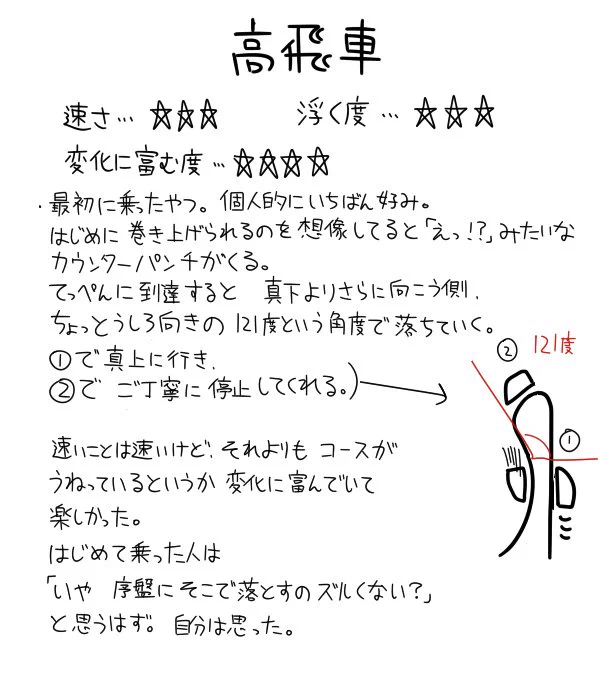 高飛車
速さ… ☆☆☆ 浮く度… ☆☆☆
変化に富む度…☆☆☆☆
・最初に乗ったやつ。個人的にいちばん好み。
はじめに巻き上げられるのを想像してると「えっ!?」みたいな
カウンターパンチがくる。
てっぺんに到達すると 真下よりさらに向こう側、
ちょっとうしろ向きの121度という角度で落ちていく。
①で真上に行き、
②で ご丁寧に停止してくれる。)
② 121度
①
速いことは速いけど、それよりも コースが
うねっているというか 変化に富んでいて
楽しかった。
はじめて乗った人は
「いや 序盤にそこで落とすのズルくない?」
と思うはず。自分は思った。